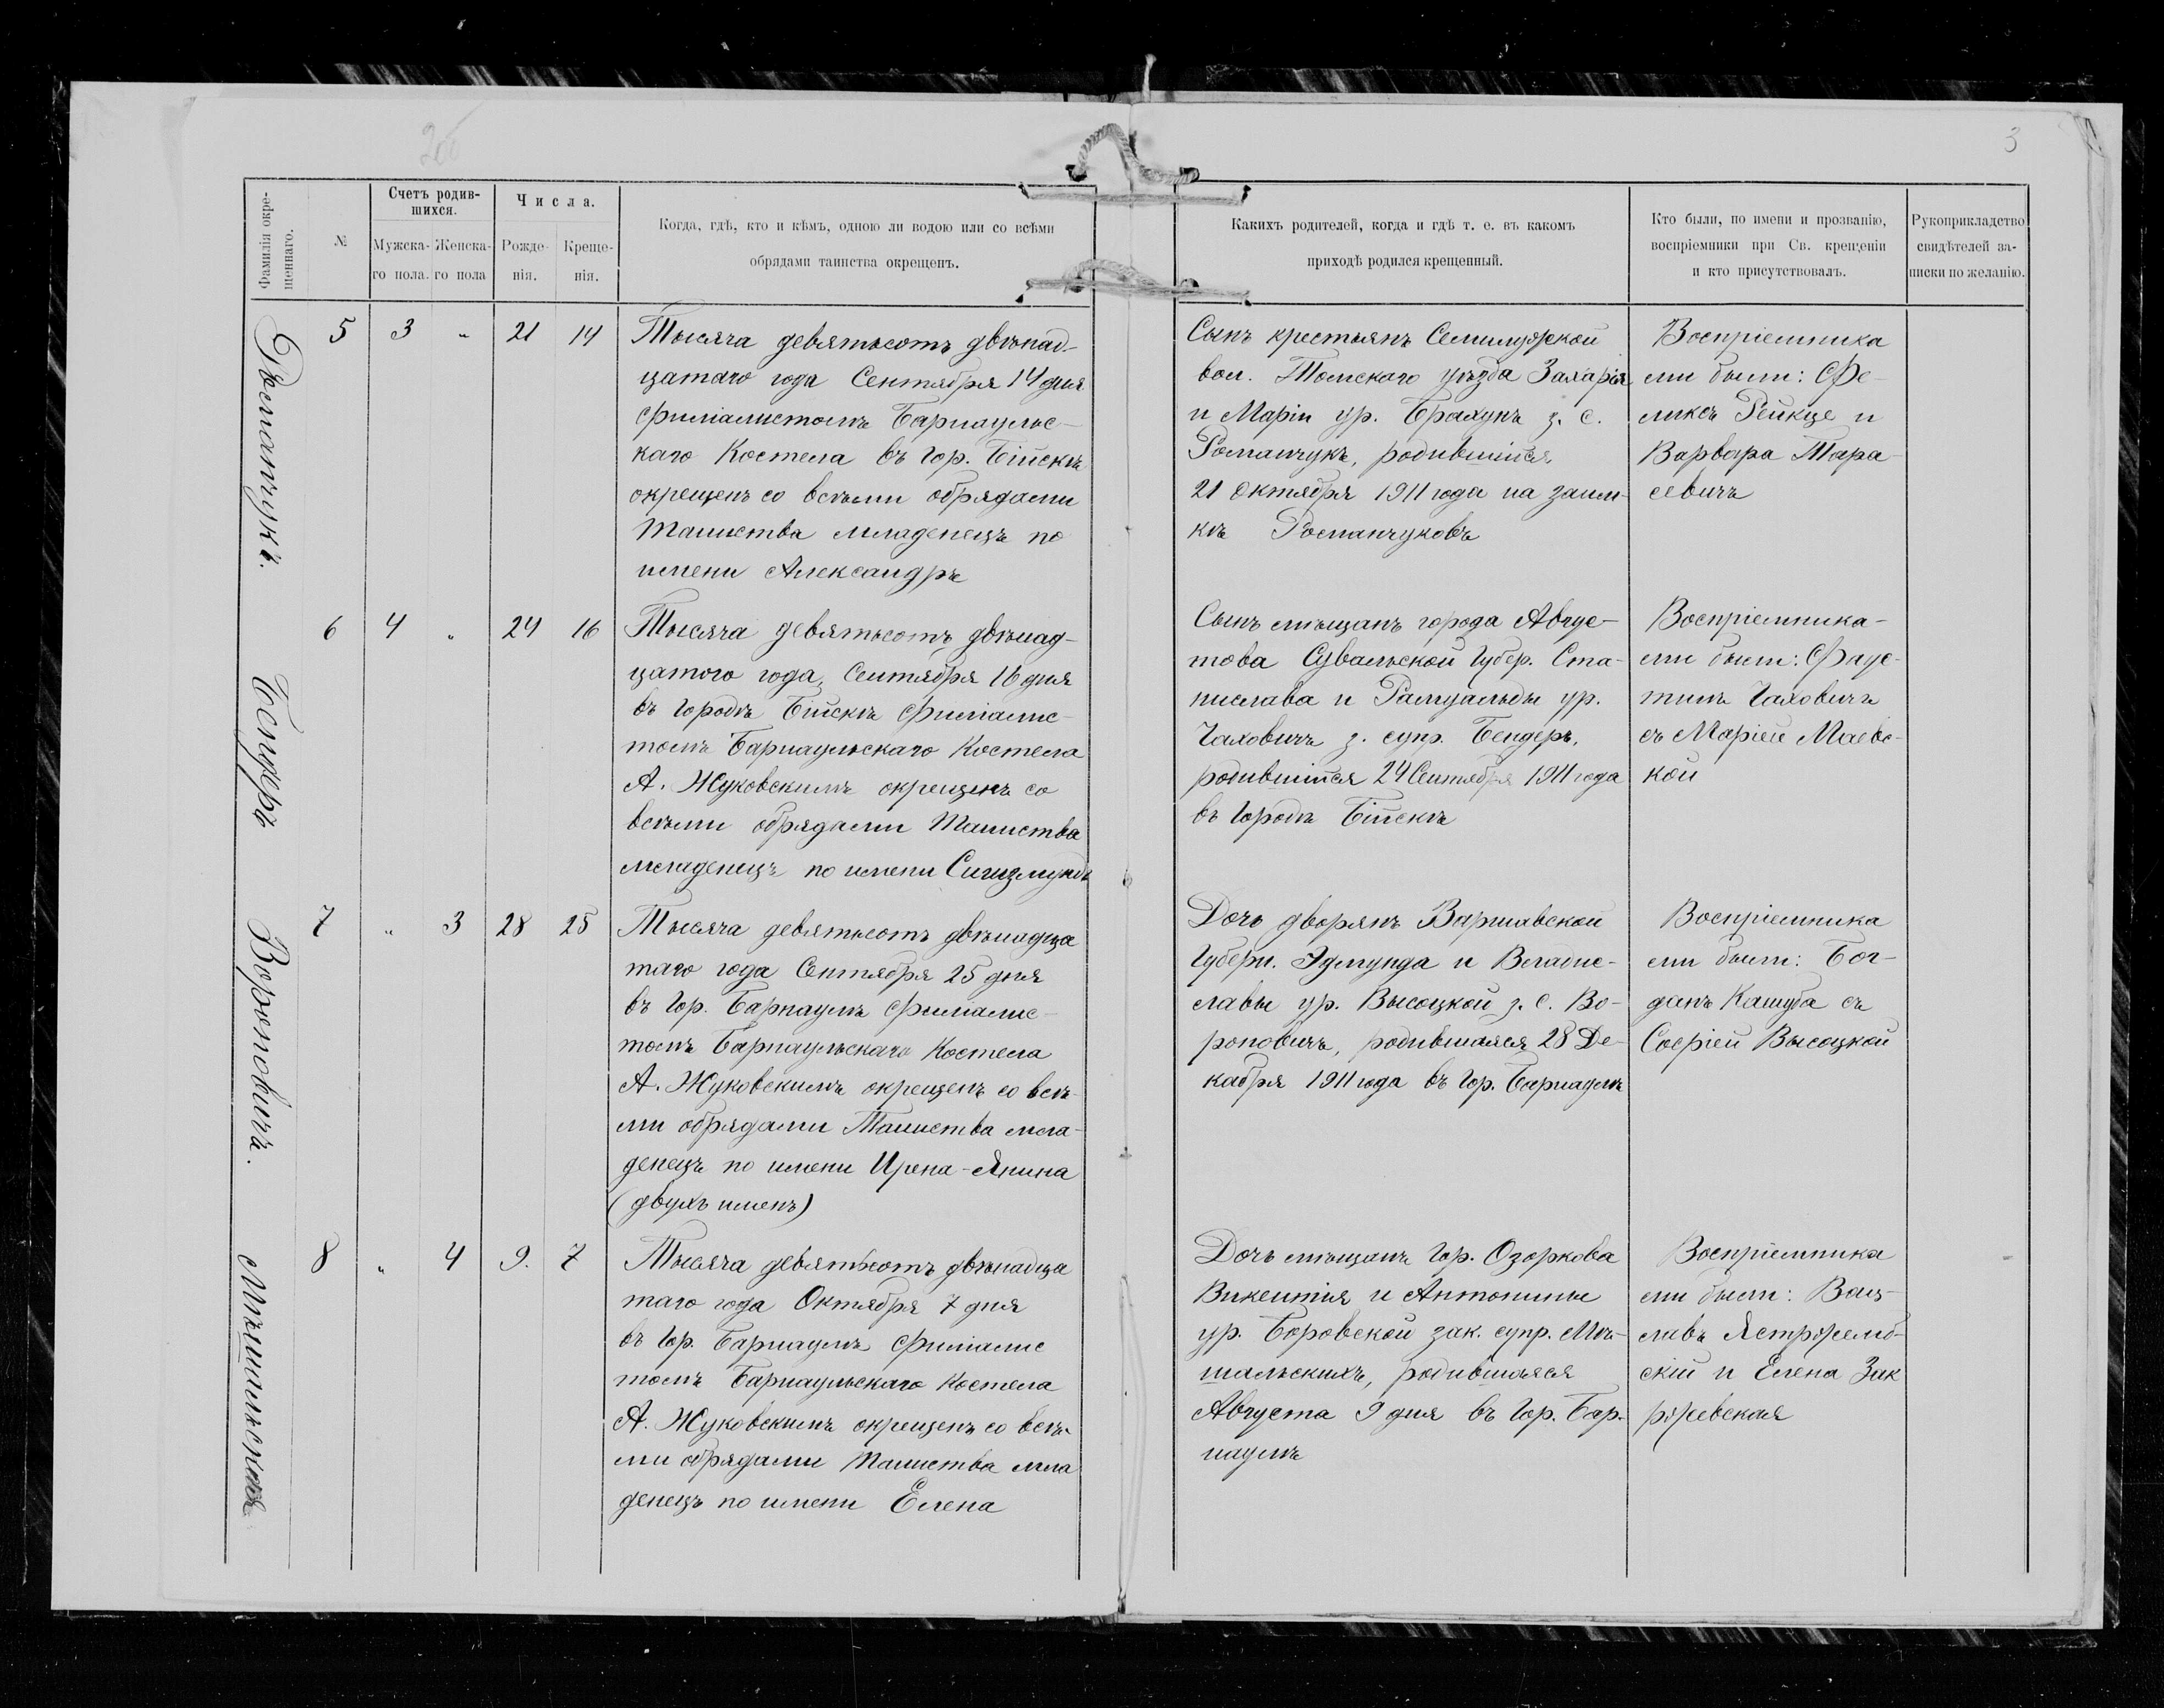 3
Фамилія окре-
шеннаго.
№
Счетъ родив-
шихся.
Мужска-
го пола.
Женска-
го пола
Числа.
Рожде-
нія.
Креще-
нія.
Когда, гдѣ, кто и кѣмъ, одною ли водою или со всѣми
обрядами таинства окрещенъ.
Какихъ родителей, когда и гдѣ т. е. въ какомъ
приходѣ родился крещенный.
Кто были, по имени и прозванію,
воспріемники при Св. крещеніи
и кто присутствовалъ.
Рукоприкладство
свидѣтелей за-
писки по желанію.
Романчукъ.
5 3 „ 21 14
Тысяча девятьсотъ двѣнад-
цатаго года Сентября 14 дня
филіалистомъ Барнаульс-
каго Костела въ гор. Бійскѣ
окрещенъ со всѣми обрядами
Таинства младенецъ по
имени Александръ
Сынъ крестьянъ Семилужской
вол. Томскаго уѣзда Захарія
и Маріи ур. Брахунъ з. с.
Романчукъ, родившійся
21 Октября 1911 года на заим-
кѣ Романчуковъ
Воспріемника
ми были: Фе-
ликсъ Рейкце и
Варвара Тара
севичъ
Бендеръ
6 4 „ 24 16
Тысяча девятьсотъ двѣнад-
цатого года, Сентября 16 дня
въ городѣ Бійскѣ филіалис-
томъ Барнаульскаго Костела
А. Жуковскимъ окрещенъ со
всѣми обрядами Таинства
младенецъ по имени Сигизмундъ
Сынъ мѣщанъ города Авгус-
това Сувальской Губер. Ста-
нислава и Рамуальды ур.
Чаховичъ з. супр. Бендеръ,
родившійся 24 Сентября 1911 года
въ городѣ Бійскѣ
Воспріемника-
ми были: Фаус-
тинъ Чаховичъ
съ Маріей Маевс-
кой
Вороновичъ.
7 „ 3 28 25
Тысяча девятьсотъ двѣнадца
таго года Сентября 25 дня
въ гор. Барнаулѣ филіалис-
томъ Барнаульскаго Костела
А. Жуковскимъ окрещенъ со всѣ-
ми обрядами Таинства мла-
денецъ по имени Ирена-Янина
(двухъ именъ)
Дочь дворянъ Варшавской
Губерн. Эдмунда и Владис-
лавы ур. Высоцкой з. с. Во-
роновичъ, родившаяся 28 Де-
кабря 1911 года въ гор. Барнаулѣ
Воспріемника
ми были: Бог-
данъ Кашуба съ
Софіей Высоцкой
8 „ 4 9. 7
Тысяча девятьсотъ двѣнадца
таго года Октября 7 дня
въ гор. Барнаулѣ филіалис
томъ Барнаульскаго Костела
А. Жуковскимъ окрещенъ со всѣ-
ми обрядами Таинства мла
денецъ по имени Елена
Дочь мѣщанъ гор. Озоркова
Викентія и Антонины
ур. Боровской зак. супр. Мѣ-
шальскихъ, родившаяся
Августа 9 дня въ гор. Бар-
наулѣ
Воспріемника
ми были: Вац-
лавъ Ястржемб-
скій и Елена Зак
ржевская